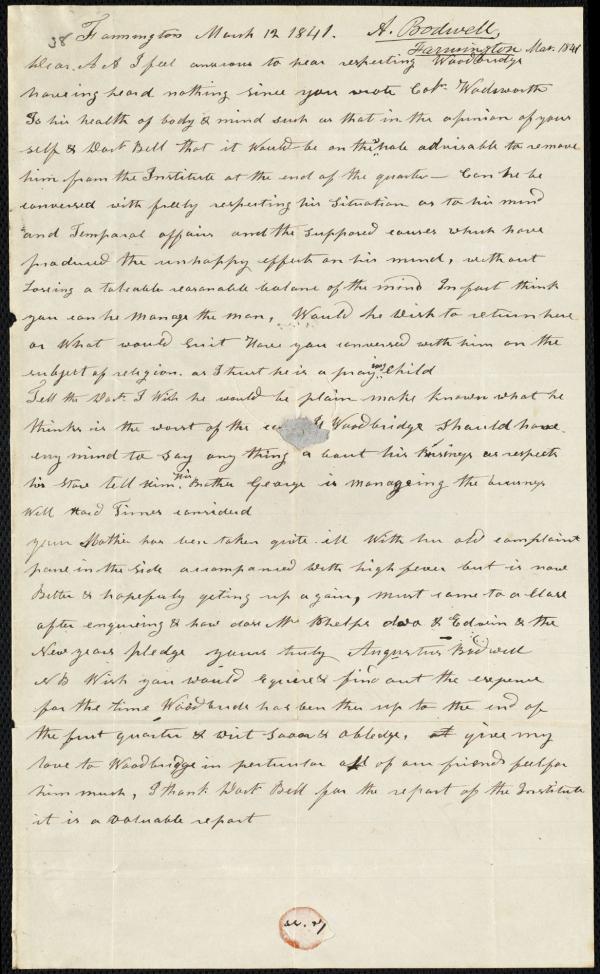 38 Farmington March 12 1841. A. Bodwell,
Farmington Mar. 1841
Dear A A I feel anxious to hear respecting Woodbridge
haveing heard nothing since you wrote Wadsworth
Is his health of body & mind such as that in the opinion of your
self & Doct Bell that it would be on the whole advisable to remove
him from the Institute at the end of the quarter — Can he be
conversed with freely respecting his situation as to his mind
and Temporal affairs and the supposed causes which have
produced the unhappy effects on his mind, without
Loseing a tolerable reasonable balance of the mind In fact think
you can he manage the man, Would he wish to return here
or What would suit Have you conversed with him on the
subject of religion. as I trust he is a praying Child
Tell the Doct. I Wish he would be plain make known what he
thinks is the worst of the If Woodbridge should have
eny mind to say any thing a bout his Business as respects
his Store tell him his Brother George is manageing the
well Hard Times considerd
your Mother has ben taken quite ill with her old complaint
pane in the side accompanied with high fever but is now
Better & hopefuly geting up again, must come to a Close
after enquireing & how dose Mr Phelps do & Edwin & the
New years pledge yours truly Augustus Bodwell
NB Wish you would & find out the expence
for the time Woodbride has ben there up to the end of
the first quarter & & obledge, give my
love to Woodbridge in perticular all of our friends feel for
him much, I thank Doct Bell for the report of the Institute
it is a valuable report